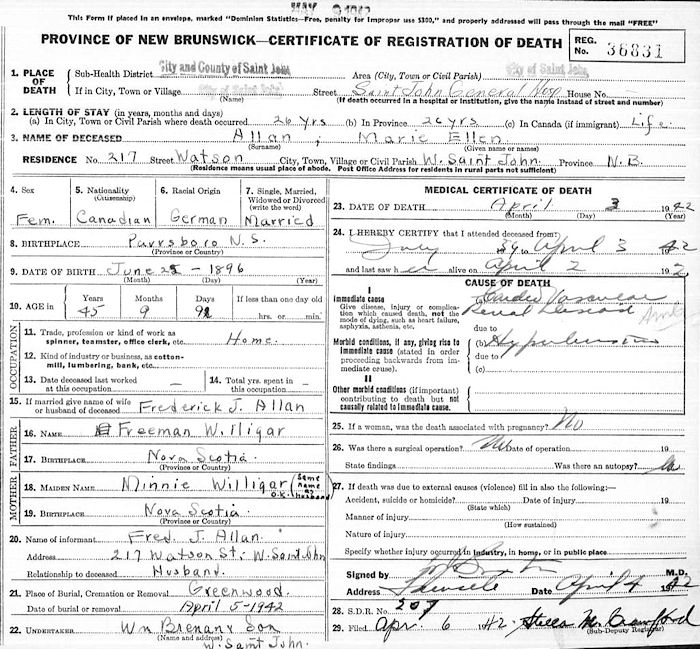 MAY 9 1942
This Form if placed in an envelope, marked "Dominion Statistics—Free, penalty for improper use $300," and properly addressed will pass through the mail "FREE"
PROVINCE OF NEW BRUNSWICK—CERTIFICATE OF REGISTRATION OF DEATH
REG. No. 36831
1. PLACE OF DEATH
Sub-Health District City and County of Saint John Area (City, Town or Civil Parish) City of Saint John
If in City, Town or Village City of Saint John Street Saint John General Hosp House No.
(Name) (If death occurred in a hospital or institution, give the name instead of street and number)
2. LENGTH OF STAY (in years, months and days)
(a) In City, Town or Civil Parish where death occurred 26 yrs (b) In Province 26 yrs (c) In Canada (if immigrant) Life
3. NAME OF DECEASED Allan, Marie Ellen
(Surname) (Given name or names)
RESIDENCE No. 217 Street Watson City, Town, Village or Civil Parish W. Saint John Province N.B.
(Residence means usual place of abode. Post Office Address for residents in rural parts not sufficient)
4. Sex Fem.
5. Nationality (Citizenship) Canadian
6. Racial Origin German
7. Single, Married, Widowed or Divorced (write the word) Married
8. BIRTHPLACE Parrsboro N.S.
(Province or Country)
9. DATE OF BIRTH June 25 - 1896
(Month) (Day) (Year)
10. AGE in Years Months Days If less than one day old
45 9 hrs. or min.
OCCUPATION
11. Trade, profession or kind of work as spinner, teamster, office clerk, etc. Home.
12. Kind of industry or business, as cotton-mill, lumbering, bank, etc.
13. Date deceased last worked at this occupation –
14. Total yrs. spent in this occupation –
15. If married give name of wife or husband of deceased Frederick J. Allan
FATHER
16. NAME Freeman Willigar
17. BIRTHPLACE Nova Scotia.
(Province or Country)
MOTHER
18. MAIDEN NAME Minnie Willigar (same name as husband) O.K.
19. BIRTHPLACE Nova Scotia.
(Province or Country)
20. Name of informant Fred. J. Allan.
Address 217 Watson St. W. Saint John
Relationship to deceased Husband.
21. Place of Burial, Cremation or Removal Greenwood.
Date of burial or removal April 5-1942
22. UNDERTAKER Wm Brenan & Son
(Name and address) W. Saint John.
MEDICAL CERTIFICATE OF DEATH
23. DATE OF DEATH April 3 1942
(Month) (Day)
24. I HEREBY CERTIFY that I attended deceased from:
39 to April 3 1942
and last saw her alive on April 2 1942
CAUSE OF DEATH
I
Immediate cause
Give disease, injury or complication which caused death, not the mode of dying, such as heart failure, asphyxia, asthenia, etc.
(a) Cardio Vascular
Renal Disease
due to
Morbid conditions, if any, giving rise to immediate cause (stated in order proceeding backwards from immediate cause).
(b) Hypertension
due to
(c)
II
Other morbid conditions (if important) contributing to death but not causally related to immediate cause.
25. If a woman, was the death associated with pregnancy? No
26. Was there a surgical operation? No Date of operation 19
State findings Was there an autopsy? No
27. If death was due to external causes (violence) fill in also the following:—
Accident, suicide or homicide? Date of injury 19
(State which)
Manner of injury
(How sustained)
Nature of injury
Specify whether injury occurred in industry, in home, or in public place
Signed by M.D.
Address Date April 4 1942
28. S.D.R. No. 207
29. Filed Apr. 6 1942 Stella M. Crawford
(Sub-Deputy Registrar)